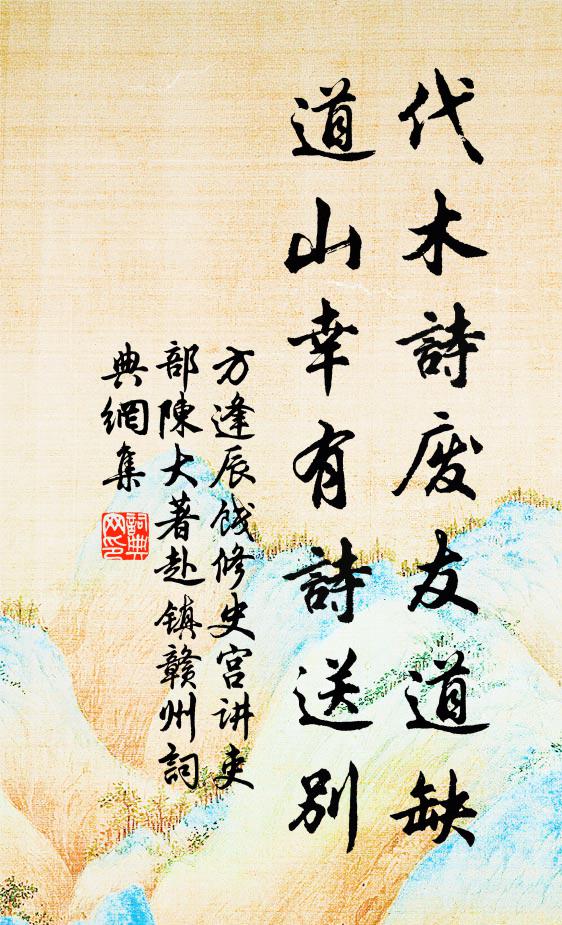 代木詩废友道缺
道山幸有詩送别
方逢辰饯修史宫讲吏
部陳大著赴镇赣州詞
典網集
詞典网印